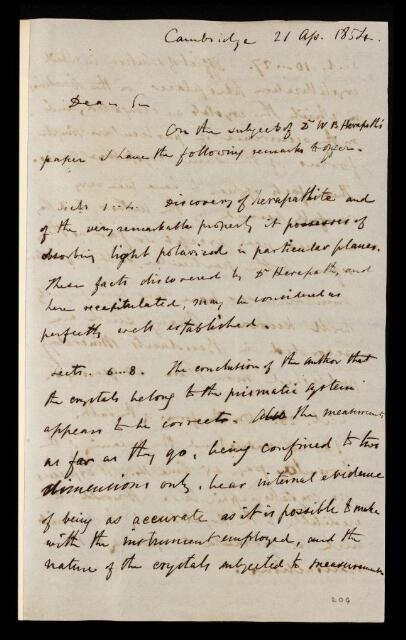 Cambridge 21 Ap. 1854.
Dear Sir
On the subject of Dr W B Herapath's
paper I have the following remarks to offer.
sects 1... Discovery of herapathite and
of the very remarkable property it possesses of
absorbing light polarized in particular planes.
These facts discovered by Dr Herapath, and
here recapitulated, may be considered as
perfectly well established
sects. 6...8. The conclusion of the author that
the crystals belong to the prismatic system
appears to be correct. Also the measurements
as far as they go, being confined to two
dimensions only, bear internal evidence
of being as accurate as it is possible to make
with the instrument employed, and the
nature of the crystals subjected to measurement
204